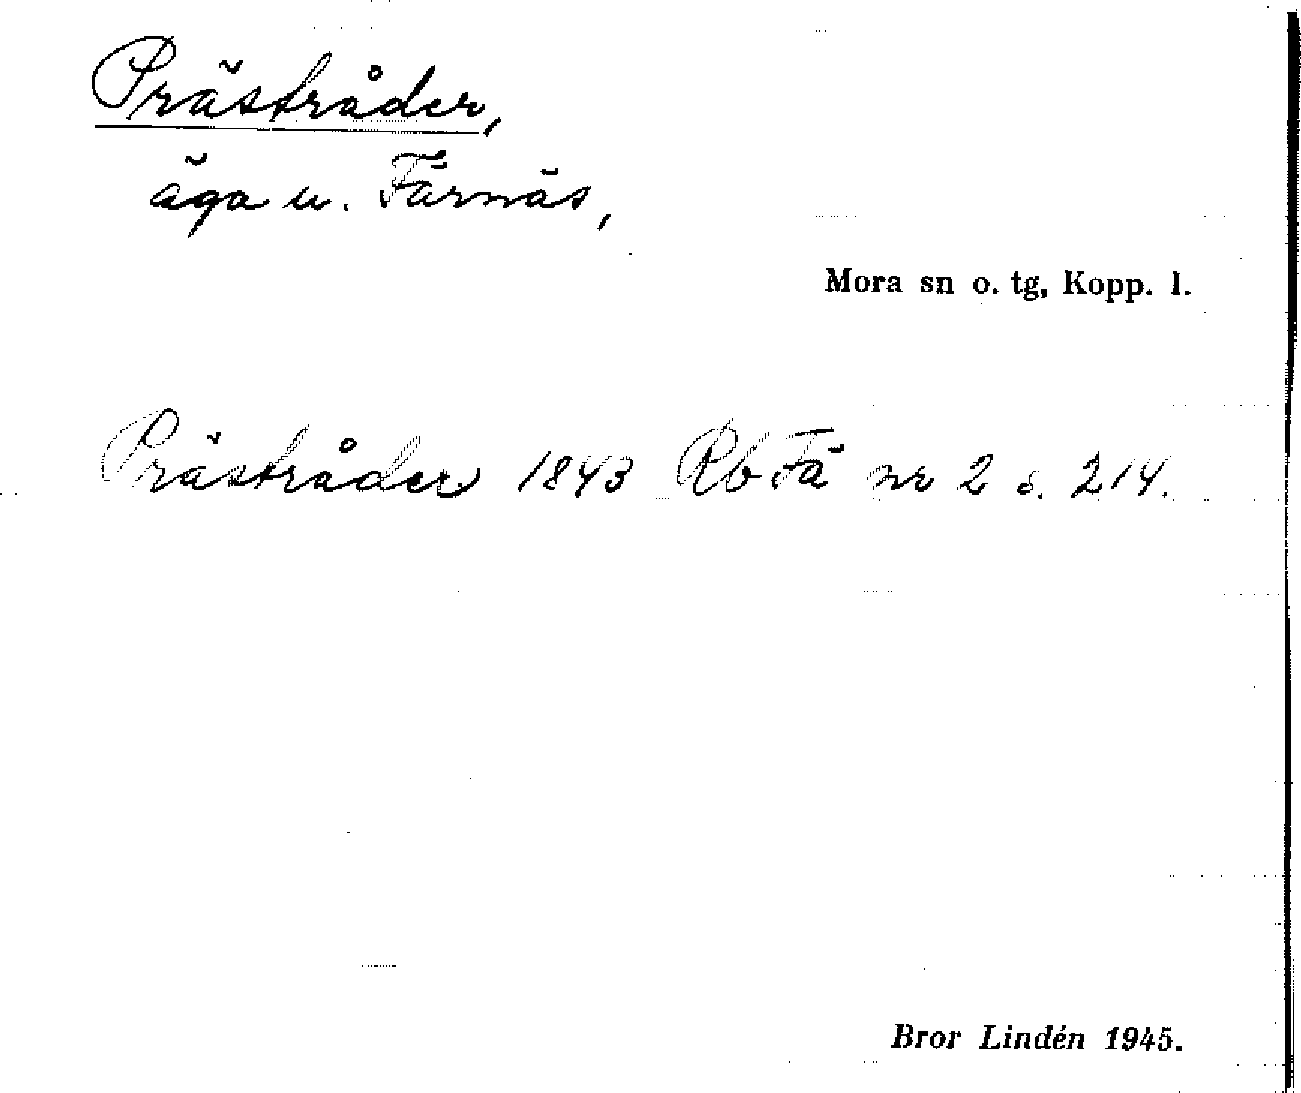 Prästråder,
äga u. Färnäs,
Mora sn o. tg, Kopp. l.
Prästråder 1843 Rb Fä nr 2 s. 214.
Bror Lindén 1945.